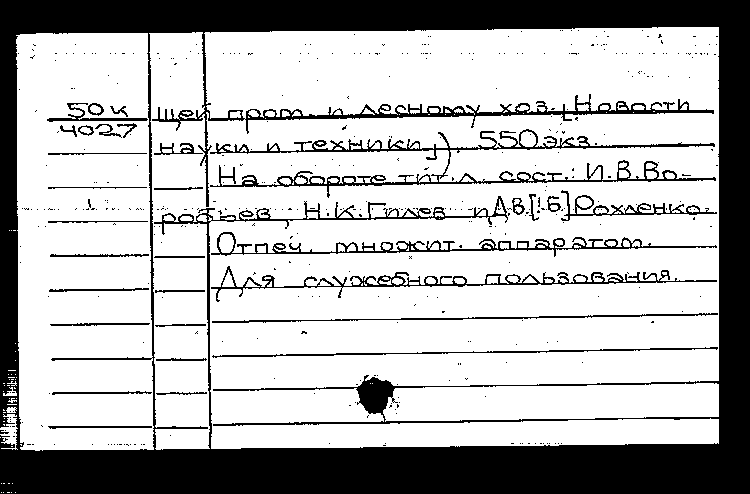 50к щей пром. и лесному хоз. [Новости
4027 науки и техники]). 550 экз.
На обороте тит. л. сост.: И.В.Во-
робьев, Н.К.Гилев и Д.В.[!Б] Рохленко.
Отпеч. множит. аппаратом.
Для служебного пользования.